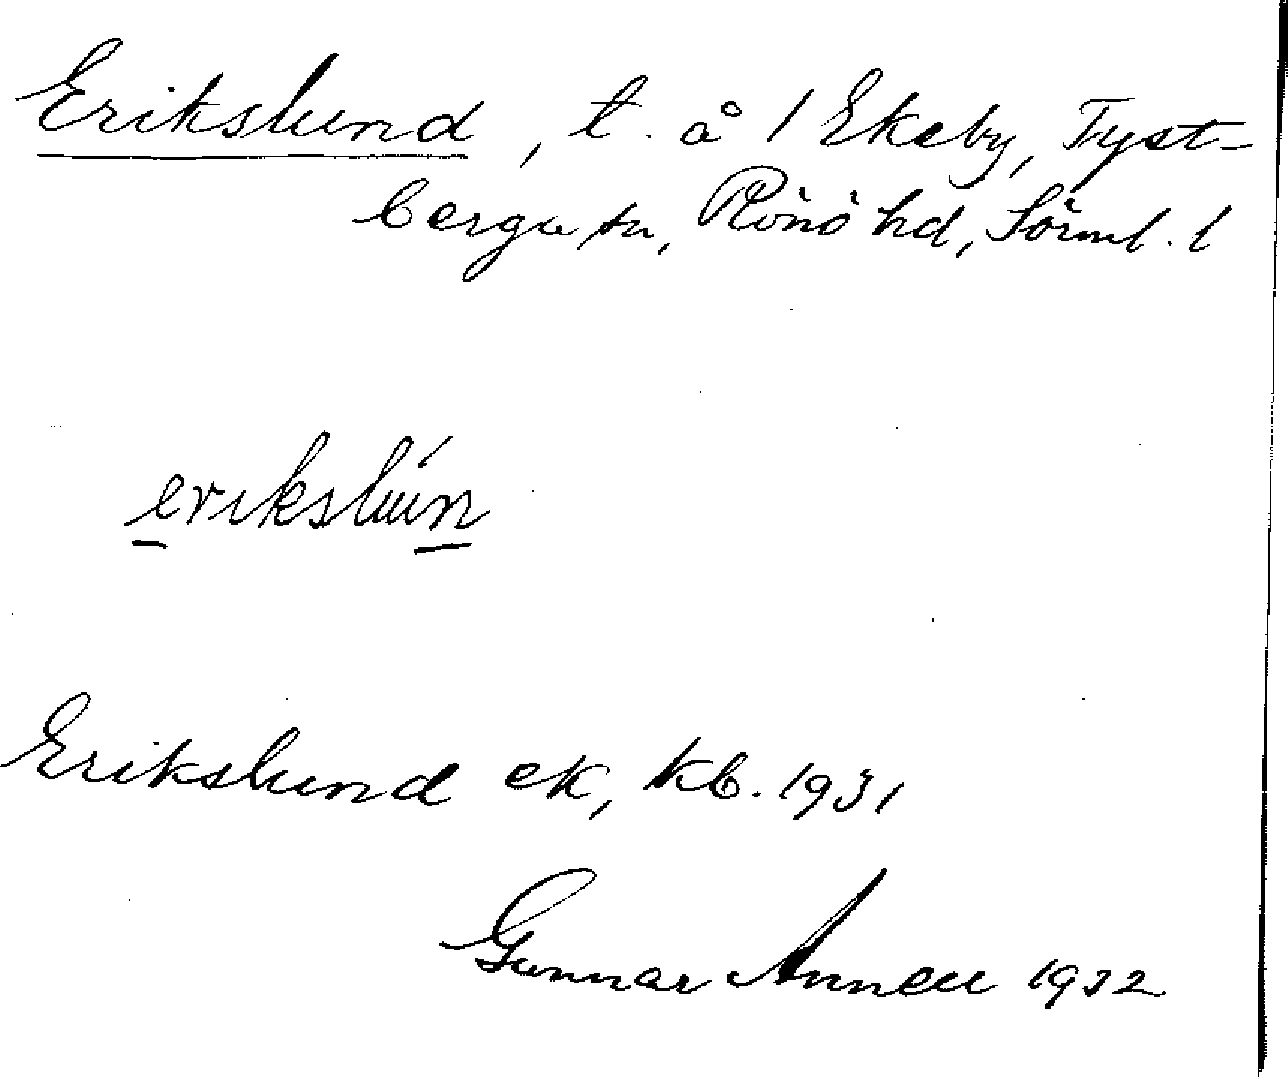 Erikslund, t. å 1 Ekeby, Tyst-
berga sn, Rönö hd, Sörml. l
erikslún
Erikslund ek, kb. 1931
Gunnar Annell 1932